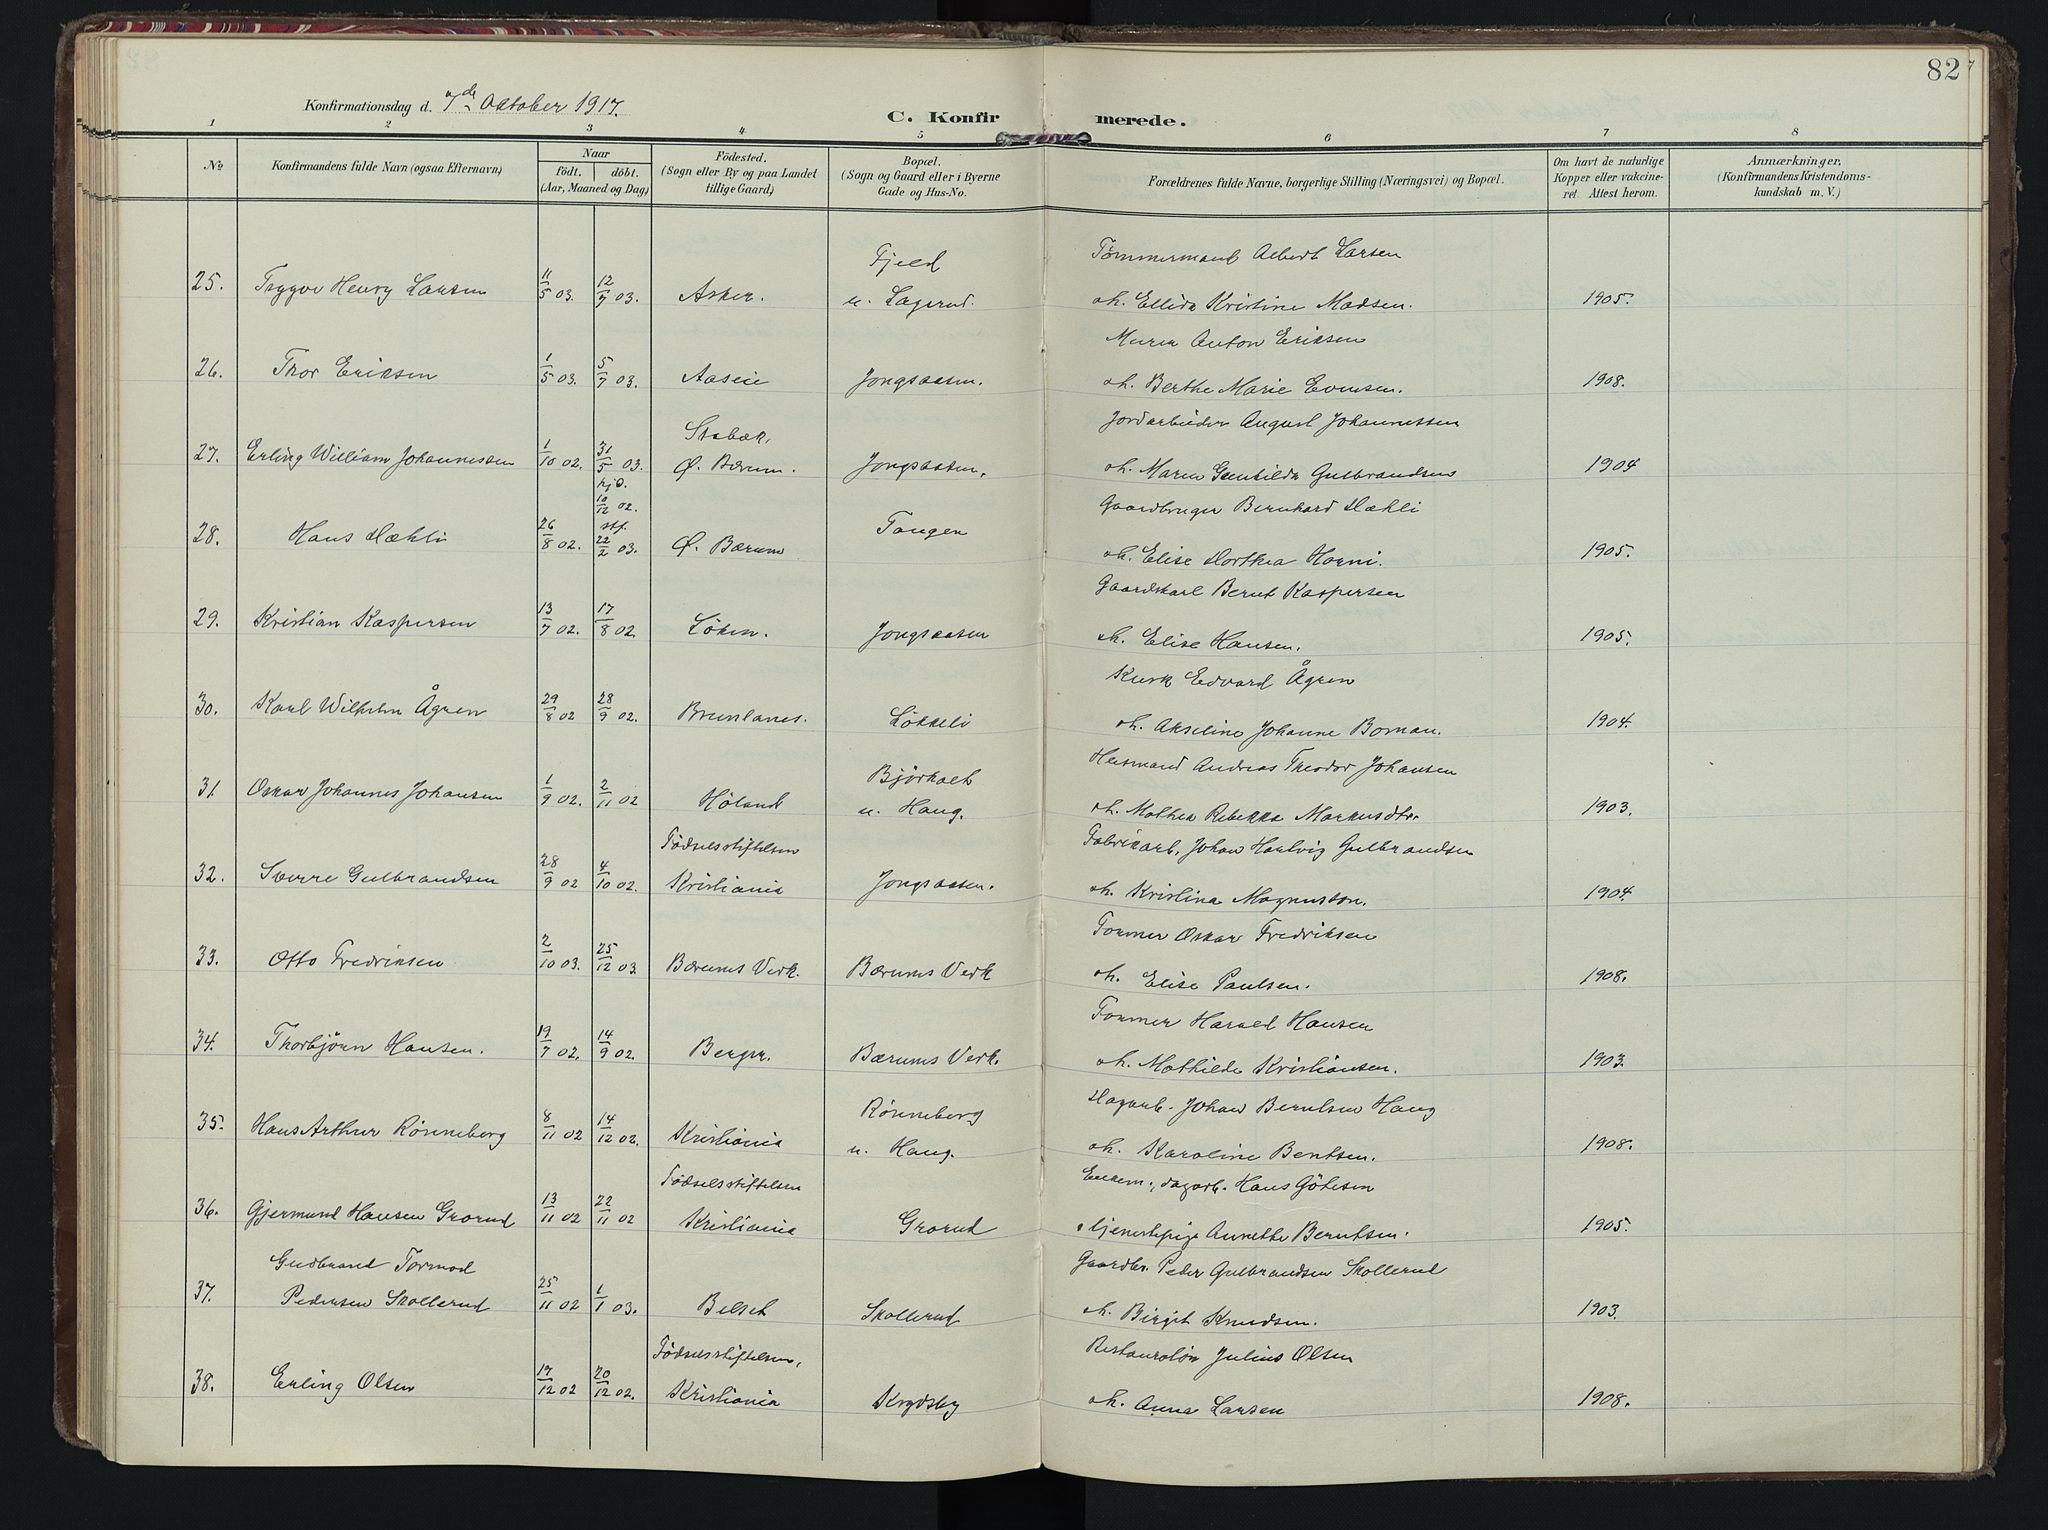 82
Konfirmationsdag d. 7de Oktober 1917.
C. Konfirmerede.
1 2 3 4 5 6 7 8
No Konfirmandens fulde Navn (ogsaa Efternavn) Naar födt. döbt. (Aar, Maaned og Dag) Födested. (Sogn eller By og paa Landet tillige Gaard) Bopæl. (Sogn og Gaard eller i Byerne Gade og Hus-No. Forældrenes fulde Navne, borgerlige Stilling (Næringsvei) og Bopæl. Om havt de naturlige Kopper eller vakcineret. Attest herom. Anmærkninger. (Konfirmandens Kristendomskundskab m. V.)
25. Trygve Henry Larsen 11/5 03. 12/7 03. Asker. Fjeld u. Løgerud. Tømmermand Albert Larsen
oh. Ellida Kristine Madsen. 1905.
26. Thor Eriksen 1/5 03. 5/7 03. Aaseie Jongsaasen. Murer Anton Eriksen
oh. Berthe Marie Evensen. 1908.
27. Erling William Johannessen 1/10 02. 31/5 03. Stabæk, Ø. Bærum. Jongsaasen. Jordarbeider August Johannessen
oh. Maren Gunhilda Gulbrandsen 1904
28. Hans Dæhli 26/8 02. hjd. 10/12 02. stf. 22/2 03. Ø. Bærum Tangen Gaardbruger Bernhard Dæhli
oh. Elise Dorthea Horni. 1905.
29. Kristian Kaspersen 13/7 02. 17/8 02. Løken. Jongsaasen Gaardskarl Bernt Kaspersen
oh. Elise Hansen. 1905.
30. Karl Wilhelm Ågren 29/8 02 28/9 02. Brunlanes. Løkkeli Kusk Edvard Ågren
oh. Akseline Johanne Borman. 1904.
31. Oskar Johannes Johansen 1/9 02. 2/11 02 Høland Bjørkholt u. Haug. Heismand Andreas Theodor Johansen
oh. Mathea Rebekka Markusdtr. 1903.
32. Sverre Gulbrandsen 28/9 02 4/10 02. Fødselsstiftelsen Kristiania Jongsaasen. Fabrikarb. Johan Hartvig Gulbrandsen
oh. Kristina Magnusson. 1904.
33. Otto Fredriksen 2/10 03. 25/12 03. Bærums Verk. Bærums Verk Former Oskar Fredriksen
oh. Elise Paulsen. 1908.
34. Thorbjørn Hansen. 19/7 02. 14/9 02. Berger. Bærums Verk. Former Harald Hansen
oh. Mathilde Kristiansen. 1903.
35. Hans Arthur Rønneberg 8/11 02 14/12 02. Kristiania Rønneberg u. Haug. Dagarb. Johan Berntsen Haug
oh. Karoline Bentsen. 1908.
36. Gjermund Hansen Grorud 13/11 02 22/11 02 Fødselsstiftelsen Kristiania Grorud Enkem., dagarb. Hans Götesen
tjenestepige Annette Berntsen. 1905.
37. Gudbrand Tormod Pedersen Skollerud 25/11 02 1/1 03. Belset Skollerud Gaardbr. Peder Gulbrandsen Skollerud
oh. Birgit Knudsen. 1903.
38. Erling Olsen 17/12 02 20/12 02. Fødselsstiftelsen, Kristiania Krydsby Restauratør Julius Olsen
oh. Anna Larsen 1908.